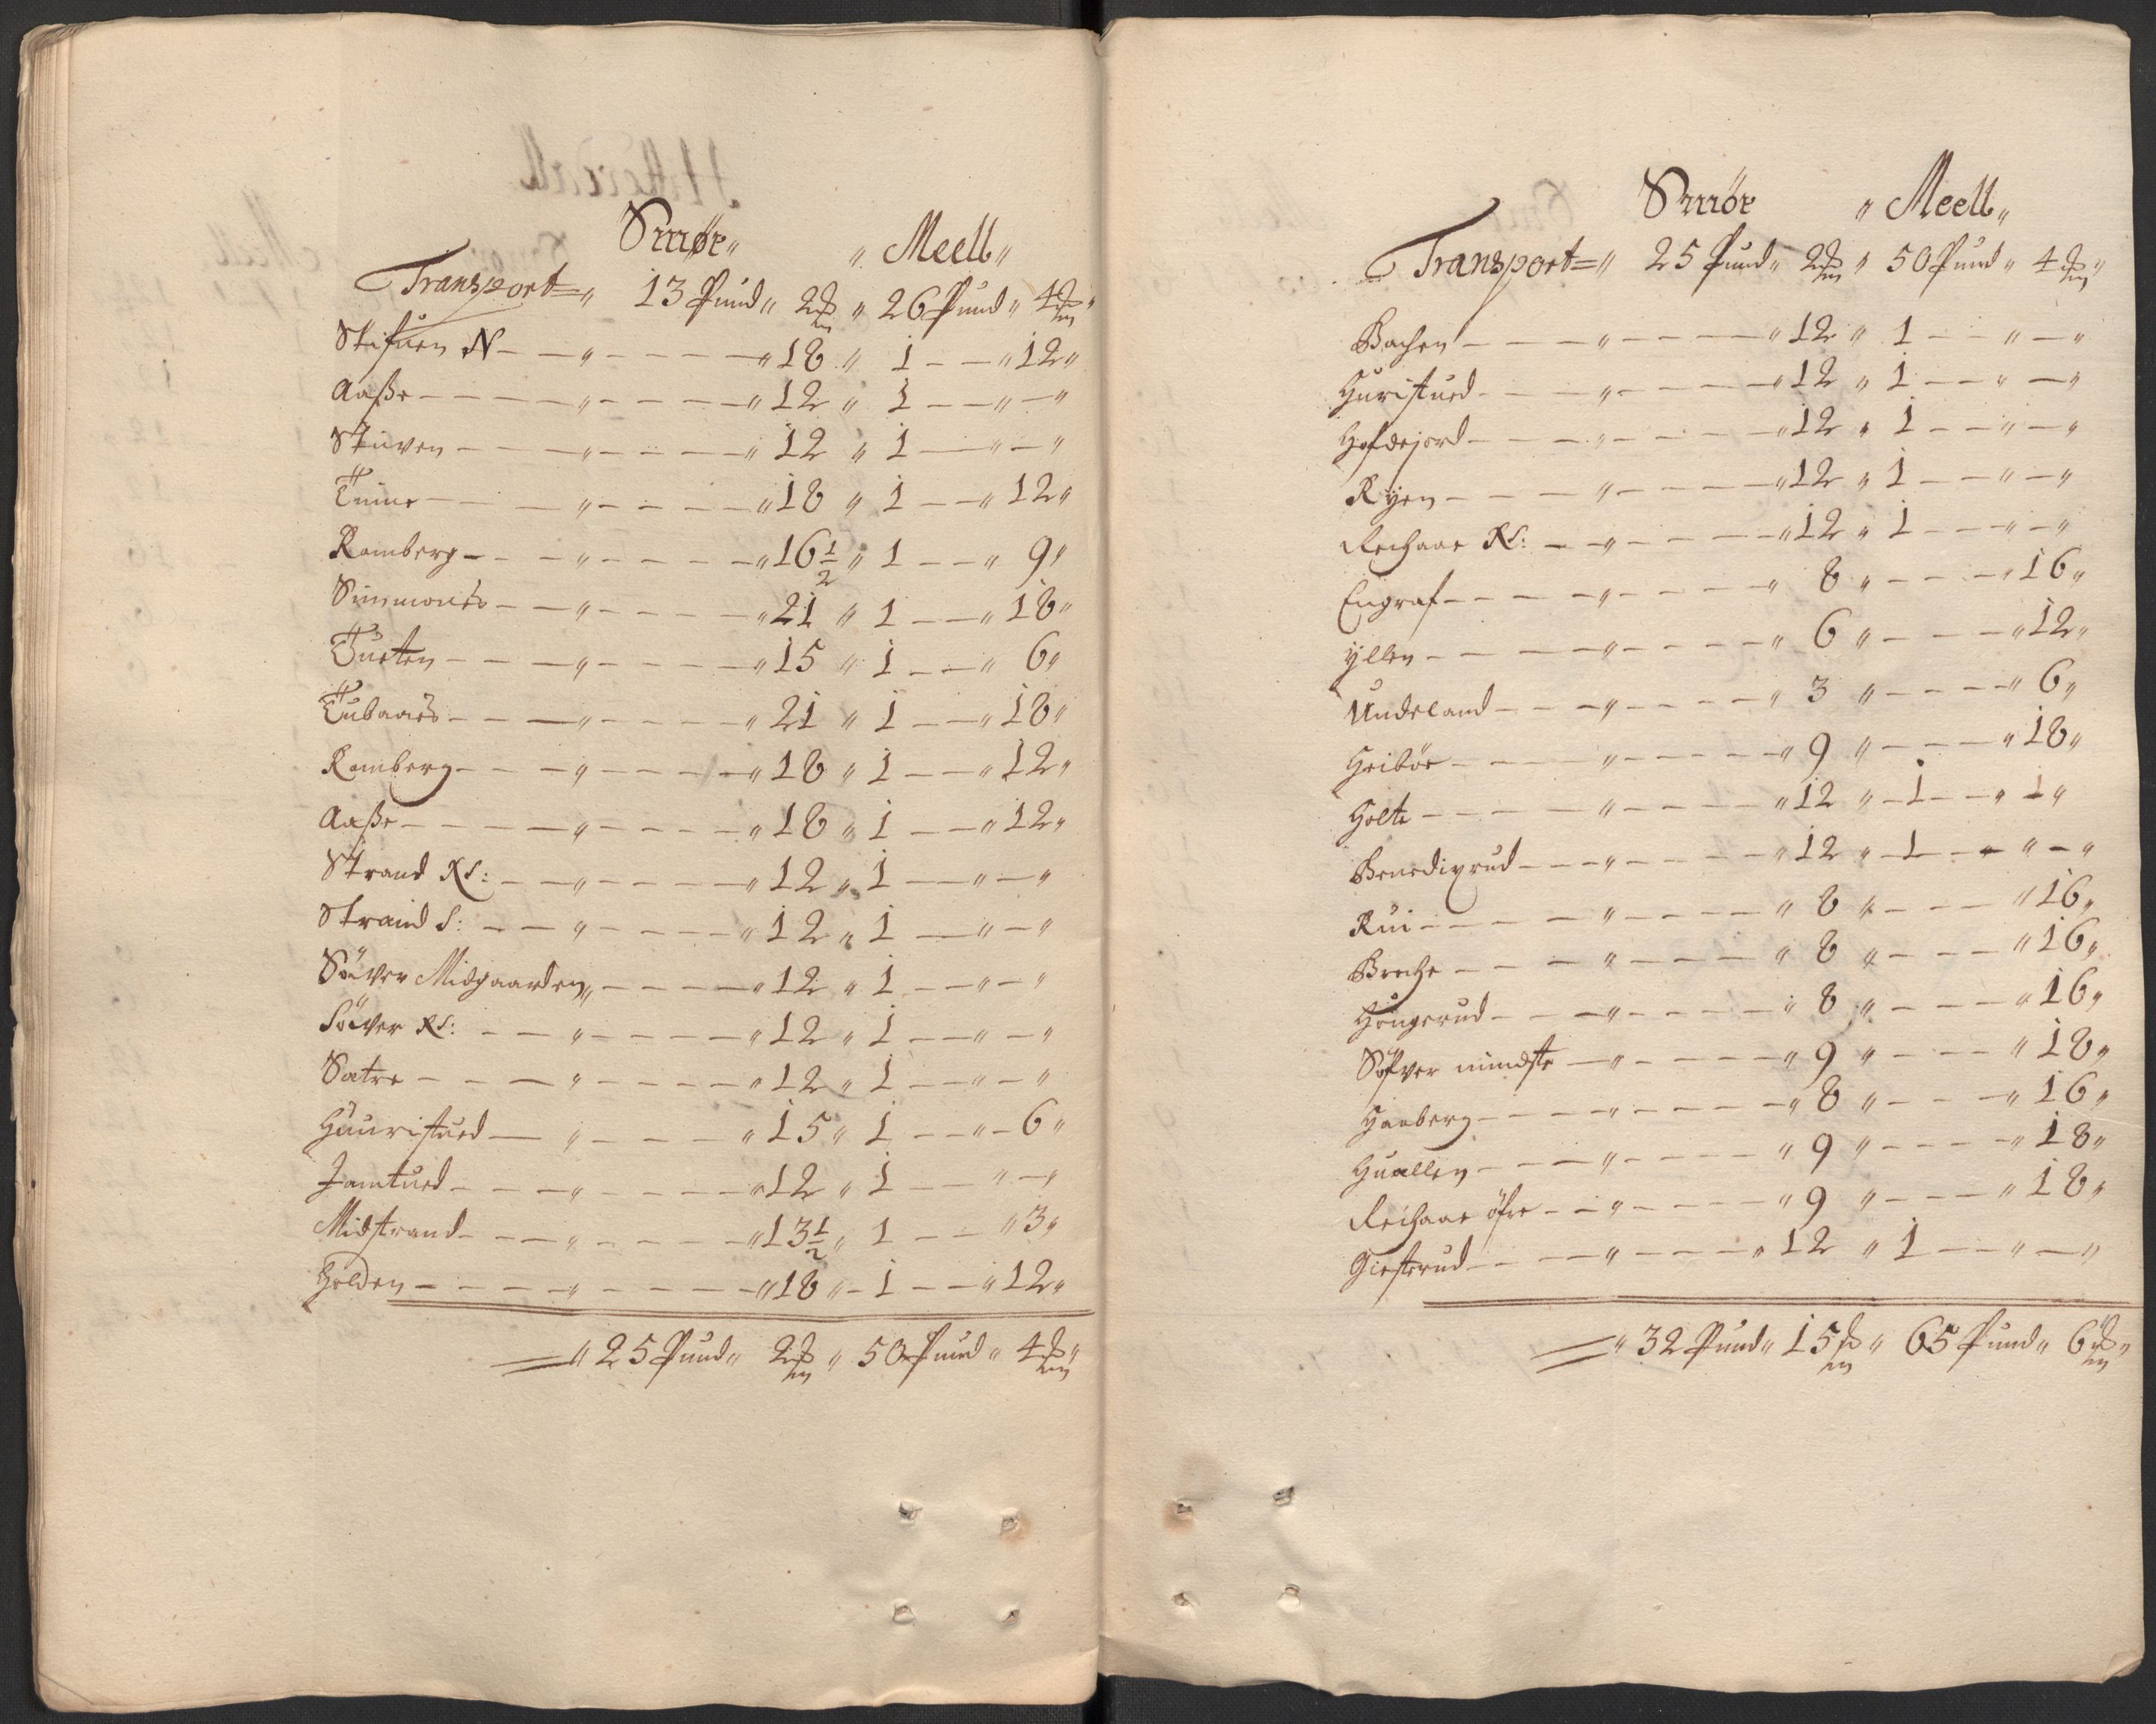 Smör „ „ Meell „
Transport = „ 13 Pund „ 2 ℔ „ 26 Pund „ 4 ℔ „
Stifuen N — — „ — — — — „ 18 „ 1 — — „ 12 „
Aaße — — — — „ — — — — „ 12 „ 1 — — „ — „
Stuven — — — „ — — — — „ 12 „ 1 — — „ — „
Tuine — — — „ — — — — „ 18 „ 1 — — „ 12 „
Ramberg — — — „ — — — — „ 16 1/2 „ 1 — — „ 9 „
Simmonés — — „ — — — — „ 21 „ 1 — — „ 18 „
Tueten — — — „ — — — — „ 15 „ 1 — — „ 6 „
Tubaaes — — — „ — — — — „ 21 „ 1 — — „ 18 „
Ramberg — — — „ — — — — „ 18 „ 1 — — „ 12 „
Aaße — — — — „ — — — — „ 18 „ 1 — — „ 12 „
Strand NS: — — „ — — — — „ 12 „ 1 — — „ — „
Strand S: — — „ — — — — „ 12 „ 1 — — „ — „
Söwer Midgaarden „ — — — — „ 12 „ 1 — — „ — „
Söwer NS: — — „ — — — — „ 12 „ 1 — — „ — „
Satre — — — „ — — — — „ 12 „ 1 — — „ — „
Huuristued — „ — — — — „ 15 „ 1 — — „ — 6 „
Jamtued — — — „ — — — — „ 12 „ 1 — — „ — „
Midstrand — — — „ — — — — „ 13 1/2 „ 1 — — „ 3 „
Holden — — — — „ — — — — „ 18 „ — 1 — — „ 12 „
= „ 25 Pund „ 2 ℔ „ 50 Pund „ 4 ℔ „
Smör „ Meell „
Transport = „ 25 Pund „ 2 ℔ „ 50 Pund „ 4 ℔ „
Bachen — — — „ — — — — „ 12 „ 1 — — „ — „
Huristued — — — „ — — — — „ 12 „ 1 — — „ — „
Hofdejord — — — „ — — — — „ 12 „ 1 — — „ — „
Ryen — — — „ — — — — „ 12 „ 1 — — „ — „
Reishaae NS: — — „ — — — — „ 12 „ 1 — — „ — „
Engraf — — — — „ — — — — „ 8 „ — — — „ 16 „
Yllen — — — — „ — — — — „ 6 „ — — — „ 12 „
Undeland — — — „ — — — — „ 3 „ — — — „ 6 „
Heiböe — — — — „ — — — — „ 9 „ — — — „ 18 „
Holte — — — — „ — — — — „ 12 „ — 1 — — „ 1 „
Benedixrud — — — „ — — — — „ 12 „ — 1 — „ — „
Rui — — — — „ — — — — „ 8 „ — — — „ 16 „
Breche — — — „ — — — — „ 8 „ — — — „ 16 „
Höugerud — — — „ — — — — „ 8 „ — — — „ 16 „
Söfver mindste — „ — — — — „ 9 „ — — — „ 18 „
Haaberg — — — — „ — — — — „ 8 „ — — — „ 16 „
Huallen — — — „ — — — — „ 9 „ — — — „ 18 „
Reishaae öfre — — „ — — — — „ 9 „ — — — „ 18 „
Giesterud — — — „ — — — — „ 12 „ 1 — — „ — „
= „ 32 Pund „ 15 ℔ „ 65 Pund „ 6 ℔ „